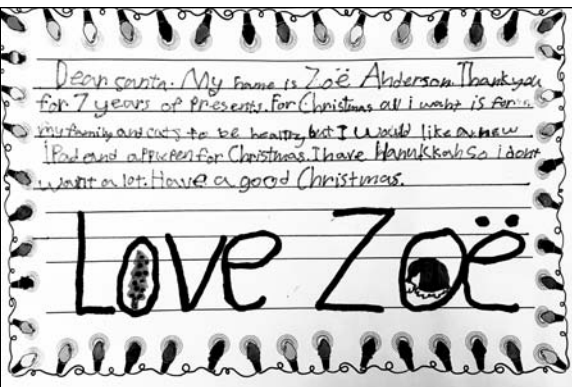 Dear santa. My name is Zoë Anderson. Thank you
for 7 years of Presents. For Christmas all i want is for
my family and cats to be healthy but I would like a new
iPad and apple pen for Christmas. I have Hanukkah so i dont
want a lot. Have a good Christmas.
Love Zoë